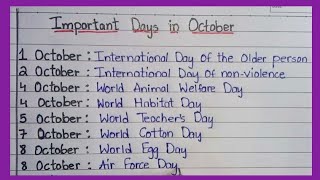 Important Days in October
1 October : International Day of the Older person
2 October : International Day of non-violence
4 October : World Animal Welfare Day
4 October : World Habitat Day
5 October : World Teacher's Day
7 October : World Cotton Day
8 October : World Egg Day
8 October : Air Force Day